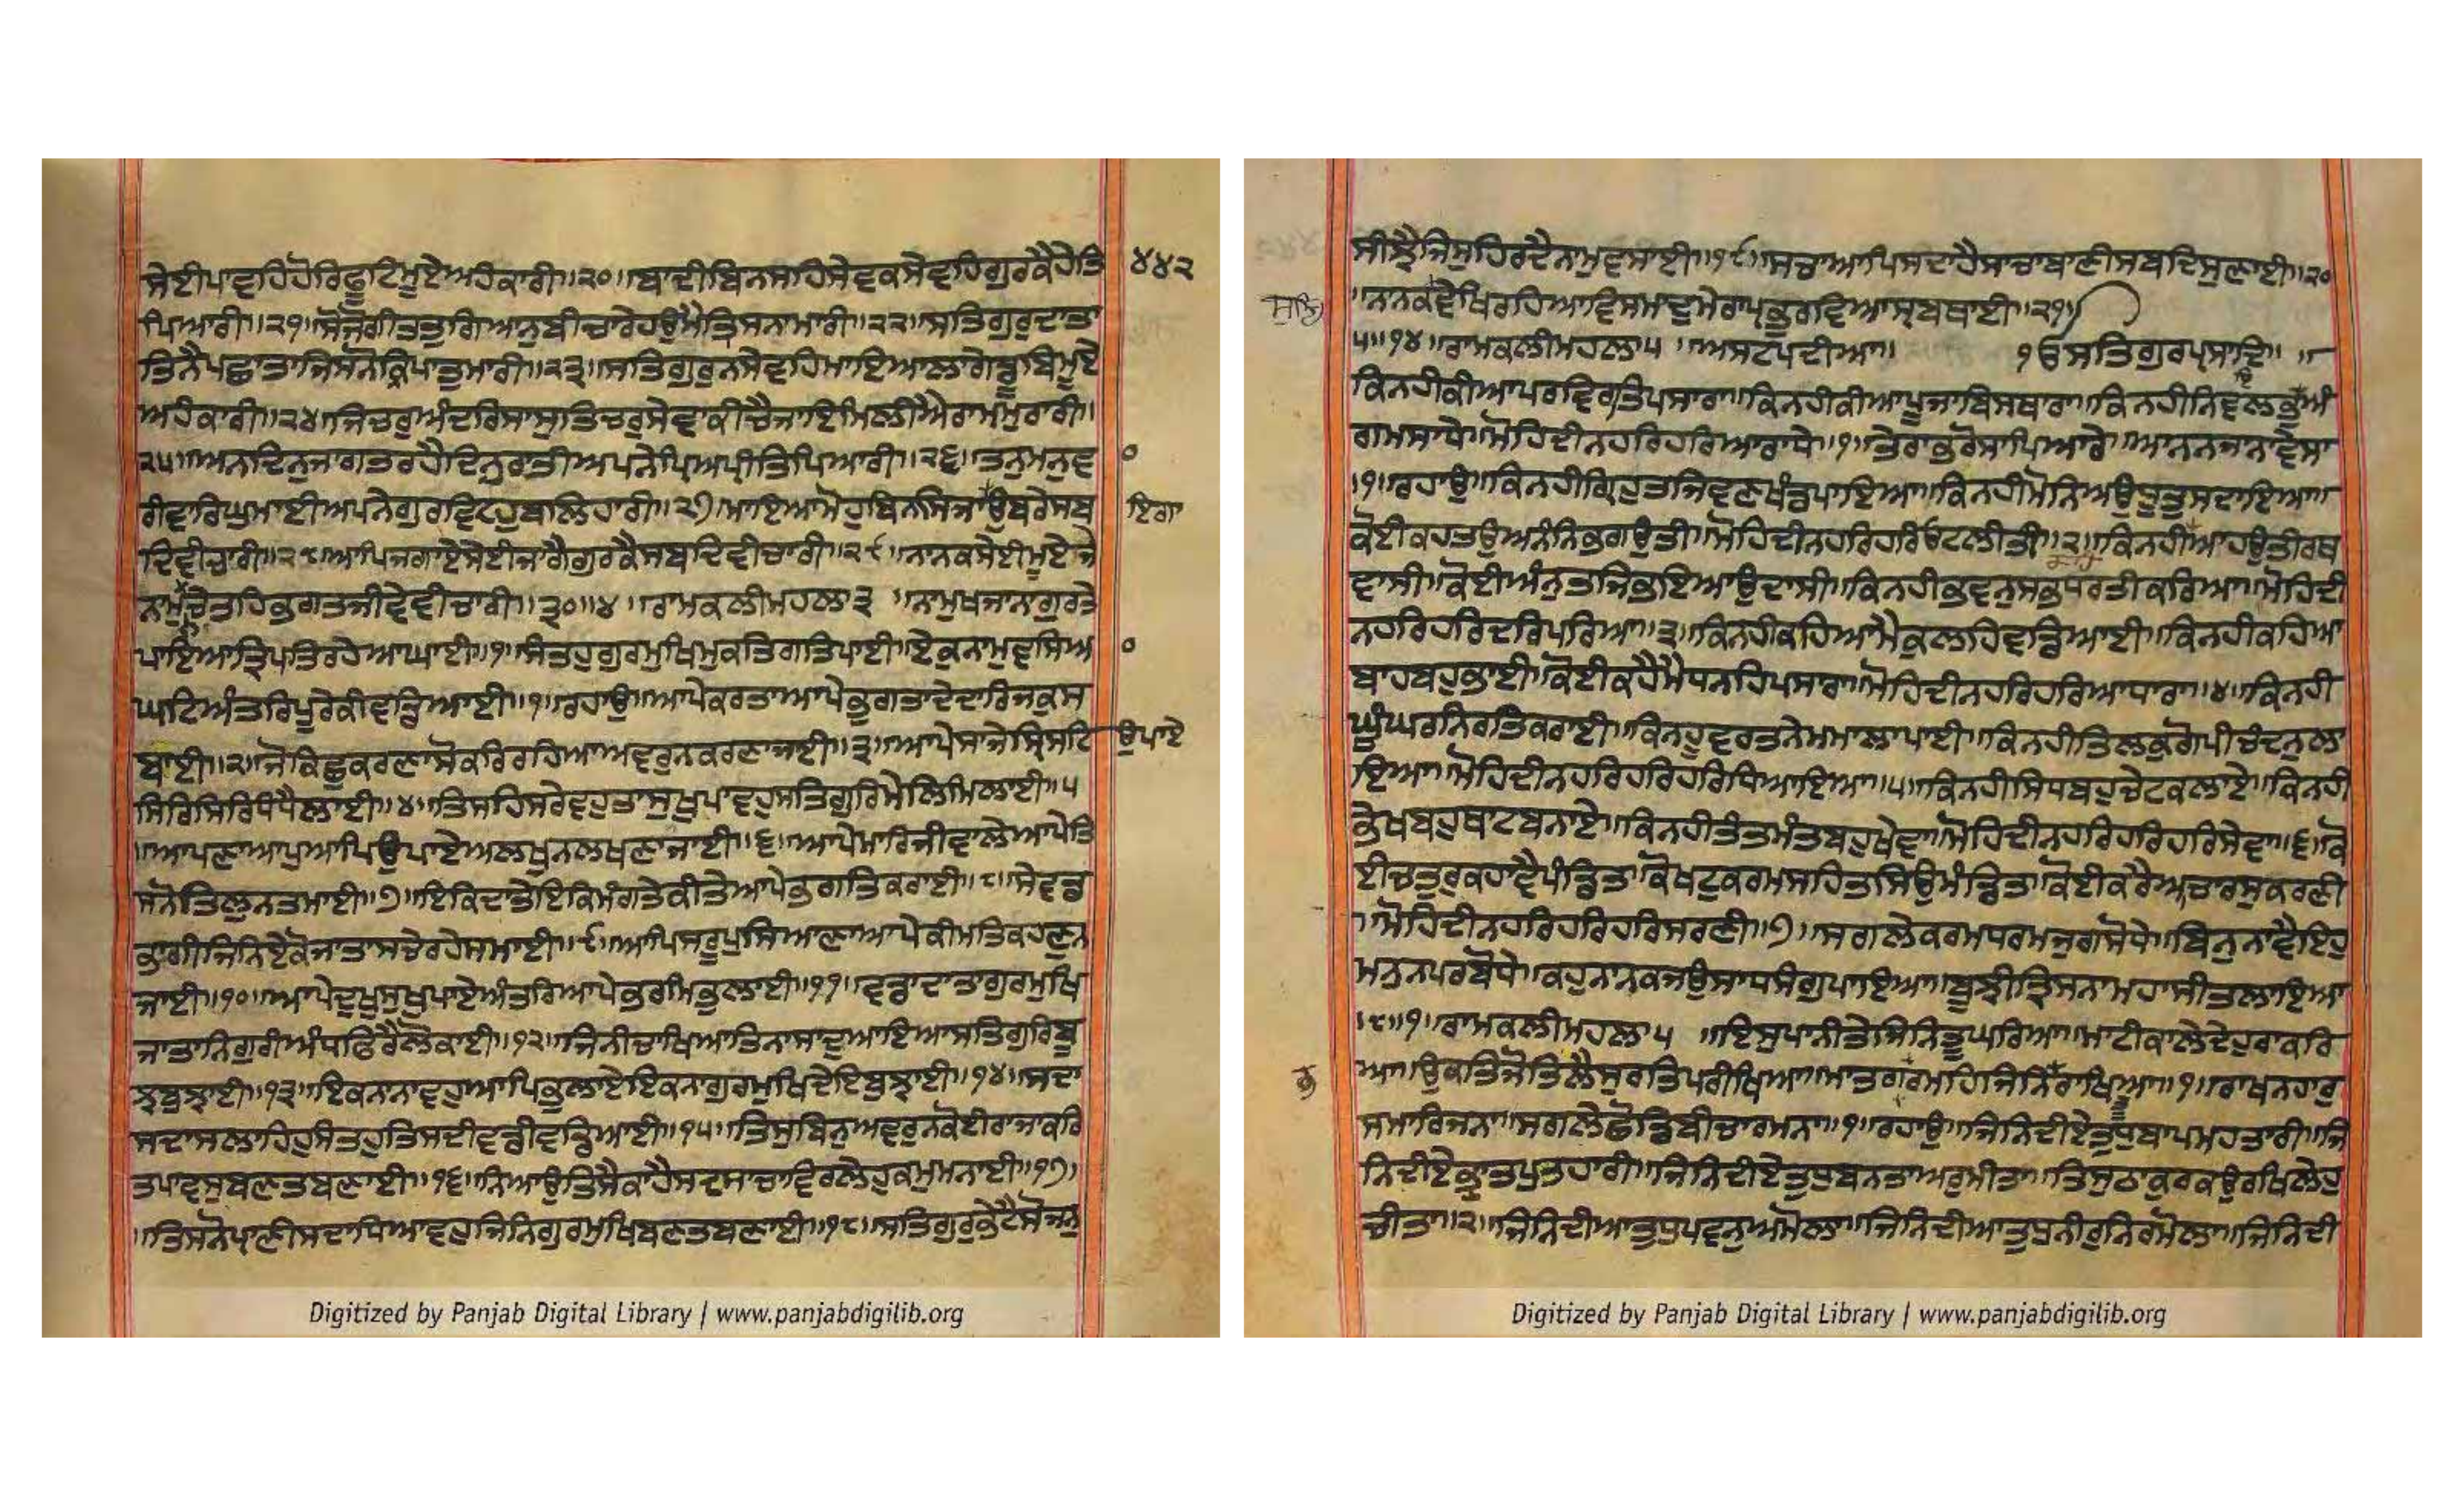 ਸੇਈਪਾਵਹਿਹੋਰਿਫੂਟਿਮੂਏਅਹੰਕਾਰੀ॥੨੦॥ਬਾਦੀਬਿਨਸਹਿਸੇਵਕਸੇਵਹਿਗੁਰਕੈਹੇਤਿ ੪੪੨
ਪਿਆਰੀ॥੨੧॥ਸੋਜੋਗੀਤਤੁਗਿਆਨੁਬੀਚਾਰੇਹਉਮੈਤ੍ਰਿਸਨਾਮਾਰੀ॥੨੨॥ਸਤਿਗੁਰੁਦਾਤਾ
ਤਿਨੈਪਛਾਤਾਜਿਸਨੋਕ੍ਰਿਪਾਤੁਮਾਰੀ॥੨੩॥ਸਤਿਗੁਰੁਨਸੇਵਹਿਮਾਇਆਲਾਗੇਡੂਬਿਮੂਏ
ਅਹੰਕਾਰੀ॥੨੪॥ਜਿਚਰੁਅੰਦਰਿਸਾਸੁਤਿਚਰੁਸੇਵਾਕੀਚੈਜਾਇਮਿਲੀਐਰਾਮਮੁਰਾਰੀ॥
੨੫॥ਅਨਦਿਨੁਜਾਗਤਰਹੈਦਿਨੁਰਾਤੀਅਪਨੇਪ੍ਰਿਅਪ੍ਰੀਤਿਪਿਆਰੀ॥੨੬॥ਤਨੁਮਨੁਵਾ ੦
ਰੀਵਾਰਿਘੁਮਾਈਅਪਨੇਗੁਰਵਿਟਹੁਬਲਿਹਾਰੀ॥੨੭॥ਮਾਇਆਮੋਹੁਬਿਨਸਿਜਾਉਬਰੇਸਬ ਇਗਾ
ਦਿਵੀਚਾਰੀ॥੨੮॥ਆਪਿਜਗਾਏਸੇਈਜਾਗੇਗੁਰਕੈਸਬਦਿਵੀਚਾਰੀ॥੨੯॥ਨਾਨਕਸੇਈਮੂਏਜਿ
ਨਾਮੁਨਚੇਤਹਿਭਗਤਜੀਵੇਵੀਚਾਰੀ॥੩੦॥੪॥ਰਾਮਕਲੀਮਹਲਾ੩ ॥ਨਾਮੁਖਜਾਨਾਗੁਰਤੇ
ਪਾਇਆਤ੍ਰਿਪਤਿਰਹੇਆਘਾਈ॥੧॥ਸੰਤਹੁਗੁਰਮੁਖਿਮੁਕਤਿਗਤਿਪਾਈ॥ਏਕੁਨਾਮੁਵਸਿਆ ੦
ਘਟਿਅੰਤਰਿਪੂਰੇਕੀਵਡਿਆਈ॥੧॥ਰਹਾਉ॥ਆਪੇਕਰਤਾਆਪੇਭੁਗਤਾਦੇਦਾਰਿਜਕੁਸ
ਬਾਈ॥੨॥ਜੋਕਿਛੁਕਰਣਾਸੋਕਰਿਰਹਿਆਅਵਰੁਨਕਰਣਾਜਾਈ॥੩॥ਆਪੇਸਾਜੇਸ੍ਰਿਸਟਿ ਉਪਾਏ
ਸਿਰਿਸਿਰਿਧੰਧੈਲਾਈ॥੪॥ਤਿਸਹਿਸਰੇਵਹੁਤਾਸੁਖੁਪਾਵਹੁਸਤਿਗੁਰਿਮੇਲਿਮਿਲਾਈ॥੫
॥ਆਪਣਾਆਪੁਆਪਿਉਪਾਏਅਲਖੁਨਲਖਣਾਜਾਈ॥੬॥ਆਪੇਮਾਰਿਜੀਵਾਲੇਆਪੇਤਿ
ਸਨੋਤਿਲੁਨਤਮਾਈ॥੭॥ਇਕਿਦਾਤੇਇਕਿਮੰਗਤੇਕੀਤੇਆਪੇਭਗਤਿਕਰਾਈ॥੮॥ਸੇਵਡ
ਭਾਗੀਜਿਨਿਏਕੋਜਾਤਾਸਚੇਰਹੇਸਮਾਈ॥੯॥ਆਪਿਸਰੂਪੁਸਿਆਣਾਆਪੇਕੀਮਤਿਕਹਣੁਨ
ਜਾਈ॥੧੦॥ਆਪੇਦੁਖੁਸੁਖੁਪਾਏਅੰਤਰਿਆਪੇਭਰਮਿਭੁਲਾਈ॥੧੧॥ਵਡਾਦਾਤਾਗੁਰਮੁਖਿ
ਜਾਤਾਨਿਗੁਰੀਅੰਧਫਿਰੈਲੋਕਾਈ॥੧੨॥ਜਿਨੀਚਾਖਿਆਤਿਨਾਸਾਦੁਆਇਆਸਤਿਗੁਰਿਬੂ
ਝਬੁਝਾਈ॥੧੩॥ਇਕਨਾਨਾਵਹੁਆਪਿਭੁਲਾਏਇਕਨਾਗੁਰਮੁਖਿਦੇਇਬੁਝਾਈ॥੧੪॥ਸਦਾ
ਸਦਾਸਲਾਹਿਹੁਸੰਤਹੁਤਿਸਦੀਵਡੀਵਡਿਆਈ॥੧੫॥ਤਿਸੁਬਿਨੁਅਵਰੁਨਕੋਈਰਾਜਾਕਰਿ
ਤਪਾਵਸੁਬਣਤਬਣਾਈ॥੧੬॥ਨਿਆਉਤਿਸੈਕਾਹੈਸਦਸਾਚਾਵਿਰਲੇਹੁਕਮੁਮਨਾਈ॥੧੭॥
॥ਤਿਸਨੋਪ੍ਰਾਣੀਸਦਾਧਿਆਵਹੁਜਿਨਿਗੁਰਮੁਖਿਬਣਤਬਣਾਈ॥੧੮॥ਸਤਿਗੁਰਭੇਟੈਸੋਜਨੁ
Digitized by Panjab Digital Library | www.panjabdigilib.org
ਸੀਝੈਜਿਸੁਹਿਰਦੈਨਾਮੁਵਸਾਈ॥੧੯॥ਸਚਾਆਪਿਸਦਾਹੈਸਾਚਾਬਾਣੀਸਬਦਿਸੁਣਾਈ॥੨੦
॥ਨਾਨਕਵੇਖਿਰਹਿਆਵਿਸਮਾਦੁਮੇਰਾਪ੍ਰਭੁਰਵਿਆਸ੍ਰਬਥਾਈ॥੨੧॥
੫॥੧੪॥ਰਾਮਕਲੀਮਹਲਾ੫ ॥ਅਸਟਪਦੀਆ॥ ੧ਓਸਤਿਗੁਰਪ੍ਰਸਾਦਿ॥ ॥
ਕਿਨਹੀਕੀਆਪਰਵਿਰਤਿਪਸਾਰਾ॥ਕਿਨਹੀਕੀਆਪੂਜਾਬਿਸਥਾਰਾ॥ਕਿਨਹੀਨਿਵਲਭੁਇਅੰ
ਗਮਸਾਧੇ॥ਮੋਹਿਦੀਨਹਰਿਹਰਿਆਰਾਧੇ॥੧॥ਤੇਰਾਭਰੋਸਾਪਿਆਰੇ॥ਆਨਨਜਾਨਾਵੇਸਾ
॥੧॥ਰਹਾਉ॥ਕਿਨਹੀਗ੍ਰਿਹੁਤਜਿਵਣਖੰਡਪਾਇਆ॥ਕਿਨਹੀਮੋਨਿਅਉਧੂਤੁਸਦਾਇਆ॥
ਕੋਈਕਹਤਉਅਨੰਨਿਭਗਉਤੀ॥ਮੋਹਿਦੀਨਹਰਿਹਰਿਓਟਲੀਤੀ॥੨॥ਕਿਨਹੀਕਹਿਆਹਉਤੀਰਥ
ਵਾਸੀ॥ਕੋਈਅੰਨੁਤਜਿਭਇਆਉਦਾਸੀ॥ਕਿਨਹੀਭਵਨੁਸਭਧਰਤੀਕਰਿਆ॥ਮੋਹਿਦੀ
ਨਹਰਿਹਰਿਦਰਿਪਰਿਆ॥੩॥ਕਿਨਹੀਕਹਿਆਮੈਕੁਲਹਿਵਡਿਆਈ॥ਕਿਨਹੀਕਹਿਆ
ਬਾਹਬਹੁਭਾਈ॥ਕੋਈਕਹੈਮੈਧਨਹਿਪਸਾਰਾ॥ਮੋਹਿਦੀਨਹਰਿਹਰਿਆਧਾਰਾ॥੪॥ਕਿਨਹੀ
ਘੂੰਘਰਨਿਰਤਿਕਰਾਈ॥ਕਿਨਹੂਵਰਤਨੇਮਮਾਲਾਪਾਈ॥ਕਿਨਹੀਤਿਲਕੁਗੋਪੀਚੰਦਨੁਲਾ
ਇਆ॥ਮੋਹਿਦੀਨਹਰਿਹਰਿਹਰਿਧਿਆਇਆ॥੫॥ਕਿਨਹੀਸਿਧਬਹੁਚੇਟਕਲਾਏ॥ਕਿਨਹੀ
ਭੇਖਬਹੁਥਾਟਬਨਾਏ॥ਕਿਨਹੀਤੰਤਮੰਤਬਹੁਖੇਵਾ॥ਮੋਹਿਦੀਨਹਰਿਹਰਿਹਰਿਸੇਵਾ॥੬॥ਕੋ
ਈਚਤੁਰੁਕਹਾਵੈਪੰਡਿਤ॥ਕੋਖਟੁਕਰਮਸਹਿਤਸਿਉਮੰਡਿਤ॥ਕੋਈਕਰੈਅਚਾਰਸੁਕਰਣੀ
॥ਮੋਹਿਦੀਨਹਰਿਹਰਿਹਰਿਸਰਣੀ॥੭॥ਸਗਲੇਕਰਮਧਰਮਜੁਗਸੋਧੇ॥ਬਿਨੁਨਾਵੈਇਹੁ
ਮਨੁਨਪਰਬੋਧੇ॥ਕਹੁਨਾਨਕਜਉਸਾਧਸੰਗੁਪਾਇਆ॥ਬੂਝੀਤ੍ਰਿਸਨਾਮਹਾਸੀਤਲਾਇਆ
॥੮॥੧॥ਰਾਮਕਲੀਮਹਲਾ੫ ॥ਇਸੁਪਾਨੀਤੇਜਿਨਿਤੂਘਰਿਆ॥ਮਾਟੀਕਾਲੇਦੇਹੁਰਾਕਰਿ
ਆ॥ਉਕਤਿਜੋਤਿਲੈਸੁਰਤਿਪਰੀਖਿਆ॥ਮਾਤਗਰਭਮਹਿਜਿਨਿਤੂਰਾਖਿਆ॥੧॥ਰਾਖਨਹਾਰੁ
ਸਮਾਰਿਜਨਾ॥ਸਗਲੇਛੋਡਿਬੀਚਾਰਮਨਾ॥੧॥ਰਹਾਉ॥ਜਿਨਿਦੀਏਤੁਧੁਬਾਪਮਹਤਾਰੀ॥ਜਿ
ਨਿਦੀਏਭ੍ਰਾਤਪੁਤਹਾਰੀ॥ਜਿਨਿਦੀਏਤੁਧੁਬਨਤਾਅਰੁਮੀਤਾ॥ਤਿਸੁਠਾਕੁਰਕਉਰਖਿਲੇਹੁ
ਚੀਤਾ॥੨॥ਜਿਨਿਦੀਆਤੁਧੁਪਵਨੁਅਮੋਲਾ॥ਜਿਨਿਦੀਆਤੁਧੁਨੀਰੁਨਿਰਮੋਲਾ॥ਜਿਨਿਦੀ
Digitized by Panjab Digital Library | www.panjabdigilib.org